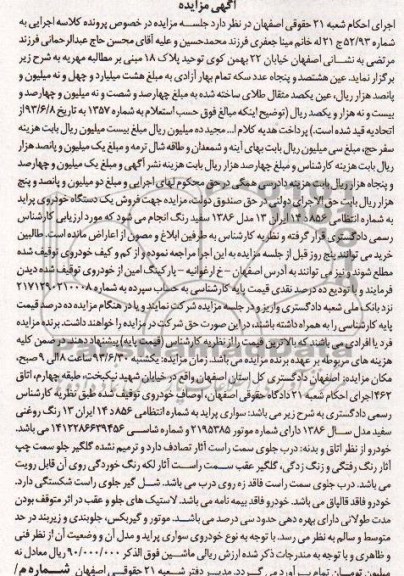 آگهی مزایده
اجرای احکام شعبه ۲۱ حقوقی اصفهان در نظر دارد جلسه مزایده در خصوص پرونده کلاسه اجرایی به
شماره ۵۲/۹۳ ج ۲۱ له خانم مینا جعفری فرزند محمدحسین و علیه آقای محسن حاج عبدالرحمانی فرزند
مرتضی به نشانی اصفهان خیابان ۲۲ بهمن کوی توحید پلاک ۱۸ مبنی بر مطالبه مهریه به شرح زیر
برگزار نماید. عین هشتصد و پنجاه عدد سکه تمام بهار آزادی به مبلغ هشت میلیارد و چهل و نه میلیون و
پانصد هزار ریال، عین یکصد مثقال طلای ساخته شده به مبلغ چهارصد و شصت و نه میلیون و چهارصد و
بیست و نه هزار و یکصد ریال (توضیح اینکه مبالغ فوق حسب استعلام به شماره ۱۳۵۷ به تاریخ ۹۳/۶/۸ از
اتحادیه قید شده است.) پرداخت هدیه کلام ا... مجید ده میلیون ریال مبلغ بیست میلیون ریال بابت هزینه
سفر حج، مبلغ سی میلیون ریال بابت بهای آینه و شمعدان و طاقه شال ترمه و مبلغ یک میلیون و پانصد هزار
ریال بابت هزینه کارشناس و مبلغ چهارصد هزار ریال بابت هزینه نشر آگهی و مبلغ یک میلیون و چهارصد
و پنجاه هزار ریال بابت هزینه دادرسی همگی در حق محکوم لهای اجرایی و مبلغ دو میلیون و پانصد و پنج
هزار ریال بابت حق الاجرای دولتی در حق صندوق دولت، مزایده جهت فروش یک دستگاه خودروی پراید
به شماره انتظامی ۸۵۶ د ۱۴ ایران ۱۳ مدل ۱۳۸۶ سفید رنگ انجام می شود که مورد ارزیابی کارشناس
رسمی دادگستری قرار گرفته و نظریه کارشناس به طرفین ابلاغ و مصون از اعتراض مانده است. طالبین
خرید می توانند پنج روز قبل از جلسه مزایده به این اجرا مراجعه نموده و از کم و کیف خودروی توقیف شده
مطلع شوند و نیز می توانند به آدرس اصفهان - خ ارغوانیه - پارکینگ امین از خودروی توقیف شده دیدن
فرمایند و با تودیع ده درصد نقدی قیمت پایه کارشناسی به حساب سپرده به شماره ۲۱۷۱۲۹۰۲۱۰۰۰۸
نزد بانک ملی شعبه دادگستری واریز و در جلسه مزایده شرکت نمایند و یا در هنگام مزایده ده درصد قیمت
پایه کارشناسی را به همراه داشته باشند، در این صورت حق شرکت در مزایده را خواهند داشت. برنده مزایده
فرد یا افرادی می باشند که بالاترین قیمت را از نظریه کارشناس (قیمت پایه) پیشنهاد دهند و در ضمن کلیه
هزینه های مربوطه بر عهده برنده مزایده می باشد. زمان مزایده: یکشنبه ۹۳/۶/۳۰ ساعت ۸ الی ۹ صبح.
مکان مزایده: اصفهان دادگستری کل استان اصفهان واقع در خیابان شهید نیکبخت، طبقه چهارم، اتاق
۴۶۲ اجرای احکام شعبه ۲۱ دادگاه حقوقی اصفهان، اوصاف خودروی توقیف شده طبق نظریه کارشناس
رسمی دادگستری به شرح زیر می باشد: سواری پراید به شماره انتظامی ۸۵۶ د ۱۴ ایران ۱۳ رنگ روغنی
سفید مدل سال ۱۳۸۶ دارای شماره موتور ۲۱۹۵۳۸۵ و شماره شاسی ۱۴۱۲۲۸۶۶۳۹۴۵۶ می باشد.
خودرو از نظر اتاق و بدنه: درب جلوی سمت راست آثار تصادف دارد و ترمیم نشده گلگیر جلو سمت چپ
آثار رنگ رفتگی و زنگ زدگی، گلگیر عقب سمت راست آثار لکه رنگ خوردگی روی آن قابل رویت
می باشد. درب جلوی سمت راست فاقد زه روی درب می باشد. شل گیر جلوی راست شکستگی دارد.
خودرو فاقد قالپاق می باشد. خودرو فاقد بیمه نامه می باشد. لاستیک های جلو و عقب در اثر متوقف بودن
مدت طولانی دارای بهره دهی حدود سی درصد می باشد. موتور و گیربکس، جلوبندی و زیربند در حد
متوسط و سالم به نظر می رسد. با توجه به نوع خودروی سواری پراید و مدل آن و وضعیت آن از نظر فنی
و ظاهری و با توجه به مندرجات ذکر شده ارزش ریالی ماشین فوق الذکر ۹۰/۰۰۰/۰۰۰ ریال معادل نه
میلیون تومان تمام برآورد می گردد. مدیر دفتر شعبه ۲۱ حقوقی اصفهان شماره م/